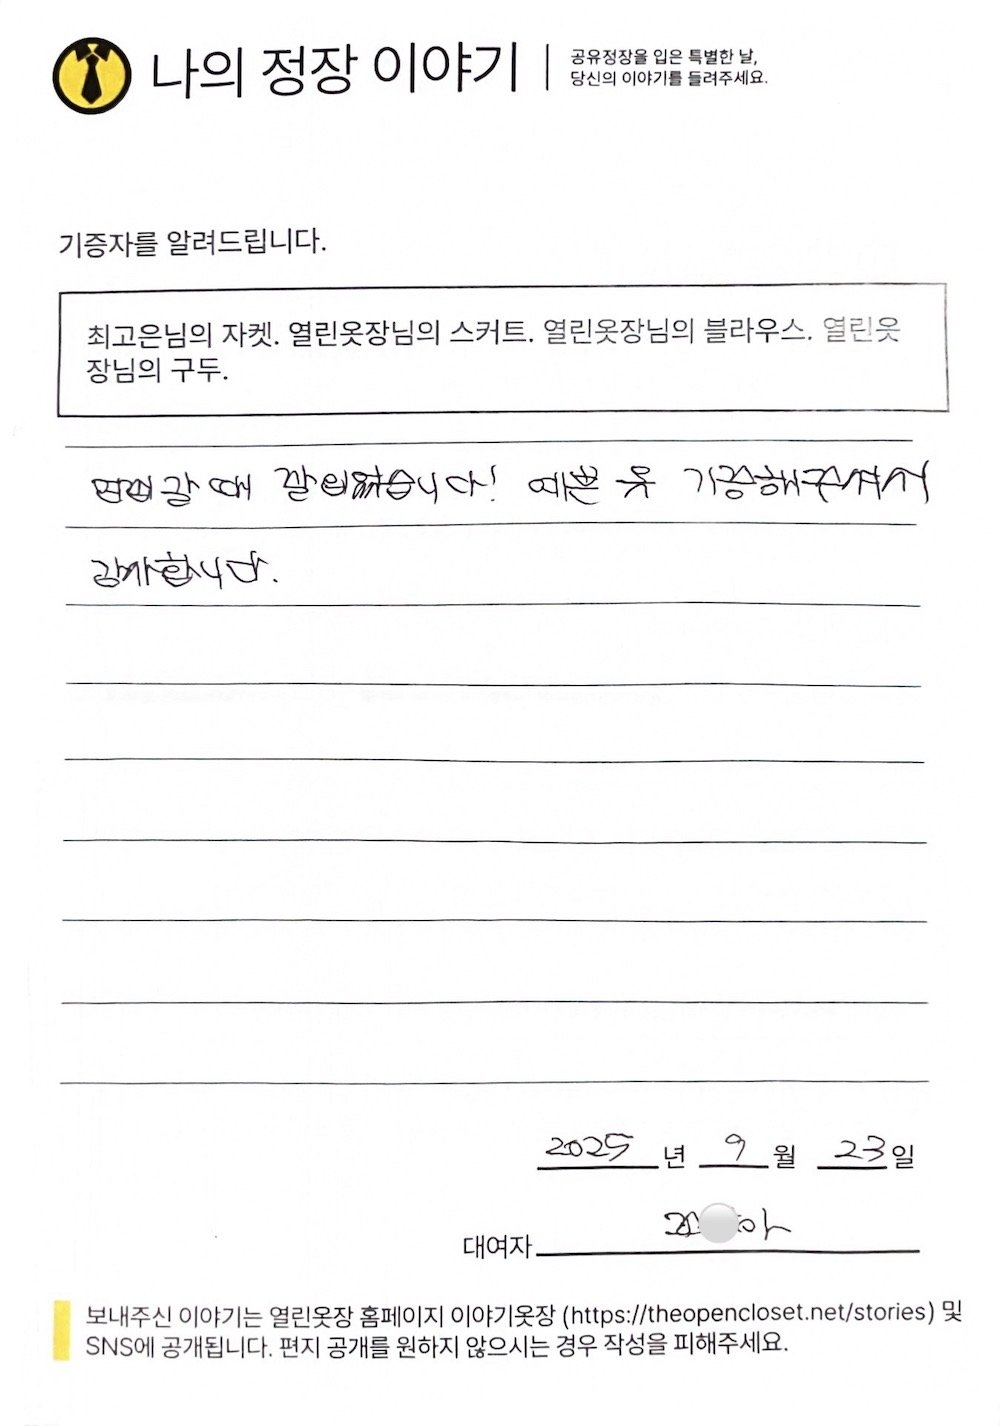 나의 정장 이야기
공유정장을 입은 특별한 날,
당신의 이야기를 들려주세요.
기증자를 알려드립니다.
최고은님의 자켓. 열린옷장님의 스커트. 열린옷장님의 블라우스. 열린옷
장님의 구두.
면접갈 때 잘 입었습니다! 예쁜 옷 기증해주셔서
감사합니다.
2025 년 9 월 23 일
대여자
보내주신 이야기는 열린옷장 홈페이지 이야기옷장 (https://theopencloset.net/stories) 및
SNS에 공개됩니다. 편지 공개를 원하지 않으시는 경우 작성을 피해주세요.